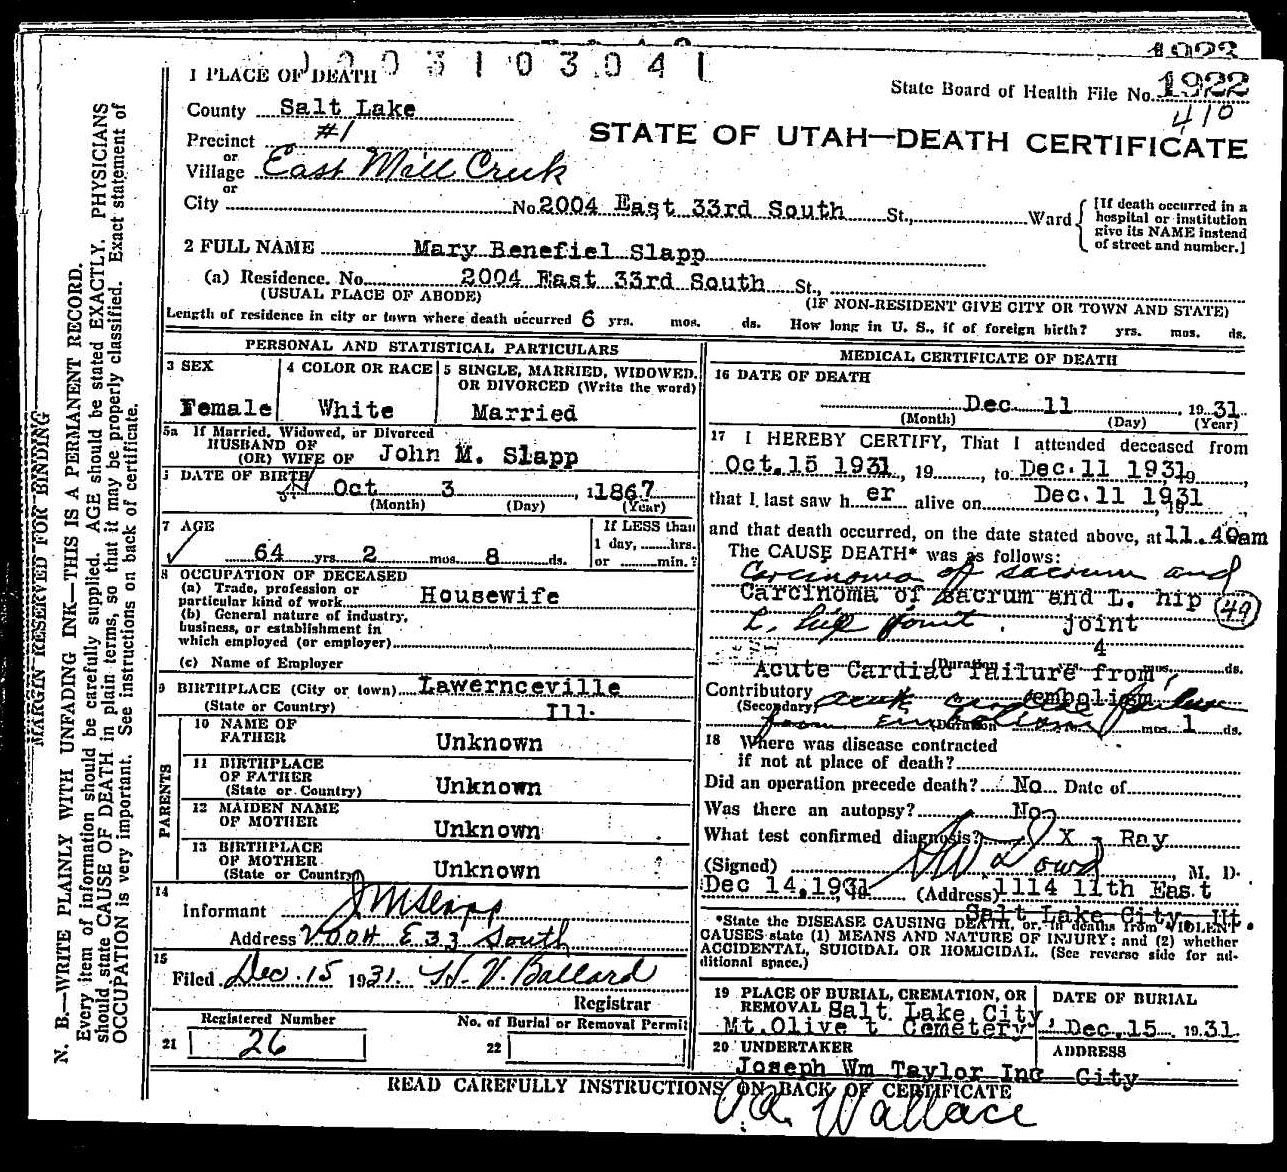 1922
1 PLACE OF DEATH
State Board of Health File No. 1922
410
County Salt Lake
Precinct #1
STATE OF UTAH—DEATH CERTIFICATE
or
Village East Mill Creek
or
City No. 2004 East 33rd South St., Ward
[If death occurred in a
hospital or institution
give its NAME instead
of street and number.]
2 FULL NAME Mary Benefiel Slapp
(a) Residence. No. 2004 East 33rd South St.,
(USUAL PLACE OF ABODE) (IF NON-RESIDENT GIVE CITY OR TOWN AND STATE)
Length of residence in city or town where death occurred 6 yrs. mos. ds. How long in U. S., if of foreign birth? yrs. mos. ds.
PERSONAL AND STATISTICAL PARTICULARS
3 SEX
Female
4 COLOR OR RACE
White
5 SINGLE, MARRIED, WIDOWED.
OR DIVORCED (Write the word)
Married
5a If Married, Widowed, or Divorced
HUSBAND OF
(OR) WIFE OF John M. Slapp
DATE OF BIRTH
Oct 3, 1867
(Month) (Day) (Year)
7 AGE
64 yrs. 2 mos. 8 ds.
If LESS than
1 day, hrs.
or min.?
8 OCCUPATION OF DECEASED
(a) Trade, profession or
particular kind of work Housewife
(b) General nature of industry,
business, or establishment in
which employed (or employer)
(c) Name of Employer
9 BIRTHPLACE (City or town) Lawernceville
(State or Country) Ill.
PARENTS
10 NAME OF
FATHER Unknown
11 BIRTHPLACE
OF FATHER
(State or Country) Unknown
12 MAIDEN NAME
OF MOTHER Unknown
13 BIRTHPLACE
OF MOTHER
(State or Country) Unknown
14
Informant J M Slapp
Address 2004 E 33 South
15
Filed Dec. 15 1931. H. V. Ballard
Registrar
Registered Number
21 26
No. of Burial or Removal Permit
22
MEDICAL CERTIFICATE OF DEATH
16 DATE OF DEATH
Dec. 11, 1931
(Month) (Day) (Year)
17 I HEREBY CERTIFY, That I attended deceased from
Oct.15 1931, 19, to Dec.11 1931, 19,
that I last saw her alive on Dec.11 1931, 19,
and that death occurred, on the date stated above, at 11.40am
The CAUSE DEATH* was as follows:
Carcinoma of sacrum and
Carcinoma of Sacrum and L. hip
L. hip joint. joint
49
4
(Duration) yrs. mos. ds.
Acute Cardiac failure from
Contributory embolism
(Secondary) acute cardiac failure
from Embolism (Duration) yrs. mos. 1 ds.
18 Where was disease contracted
if not at place of death?
Did an operation precede death? No Date of
Was there an autopsy? No
What test confirmed diagnosis? X - Ray
(Signed) Dowd, M. D.
Dec 14, 1931 (Address) 1114 11th East
Salt Lake City, Ut.
*State the DISEASE CAUSING DEATH, or, in deaths from VIOLENT
CAUSES state (1) MEANS AND NATURE OF INJURY: and (2) whether
ACCIDENTAL, SUICIDAL OR HOMICIDAL. (See reverse side for ad-
ditional space.)
19 PLACE OF BURIAL, CREMATION, OR
REMOVAL Salt Lake City,
Mt. Olivet Cemetery
DATE OF BURIAL
Dec. 15 1931.
20 UNDERTAKER
Joseph Wm Taylor Inc
ADDRESS
City
READ CAREFULLY INSTRUCTIONS ON BACK OF CERTIFICATE
Wallace
MARGIN RESERVED FOR BINDING
N. B.—WRITE PLAINLY WITH UNFADING INK—THIS IS A PERMANENT RECORD.
Every item of information should be carefully supplied. AGE should be stated EXACTLY. PHYSICIANS
should state CAUSE OF DEATH in plain terms, so that it may be properly classified. Exact statement of
OCCUPATION is very important. See instructions on back of certificate.